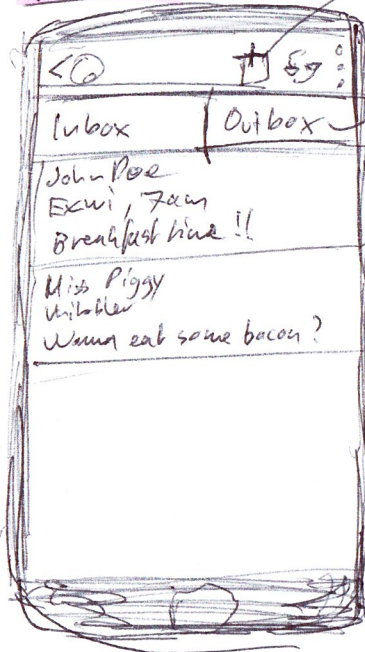 Inbox
Outbox
John Poe
7am
Breakfast time !!
Miss Piggy
Wanna eat some bacon ?